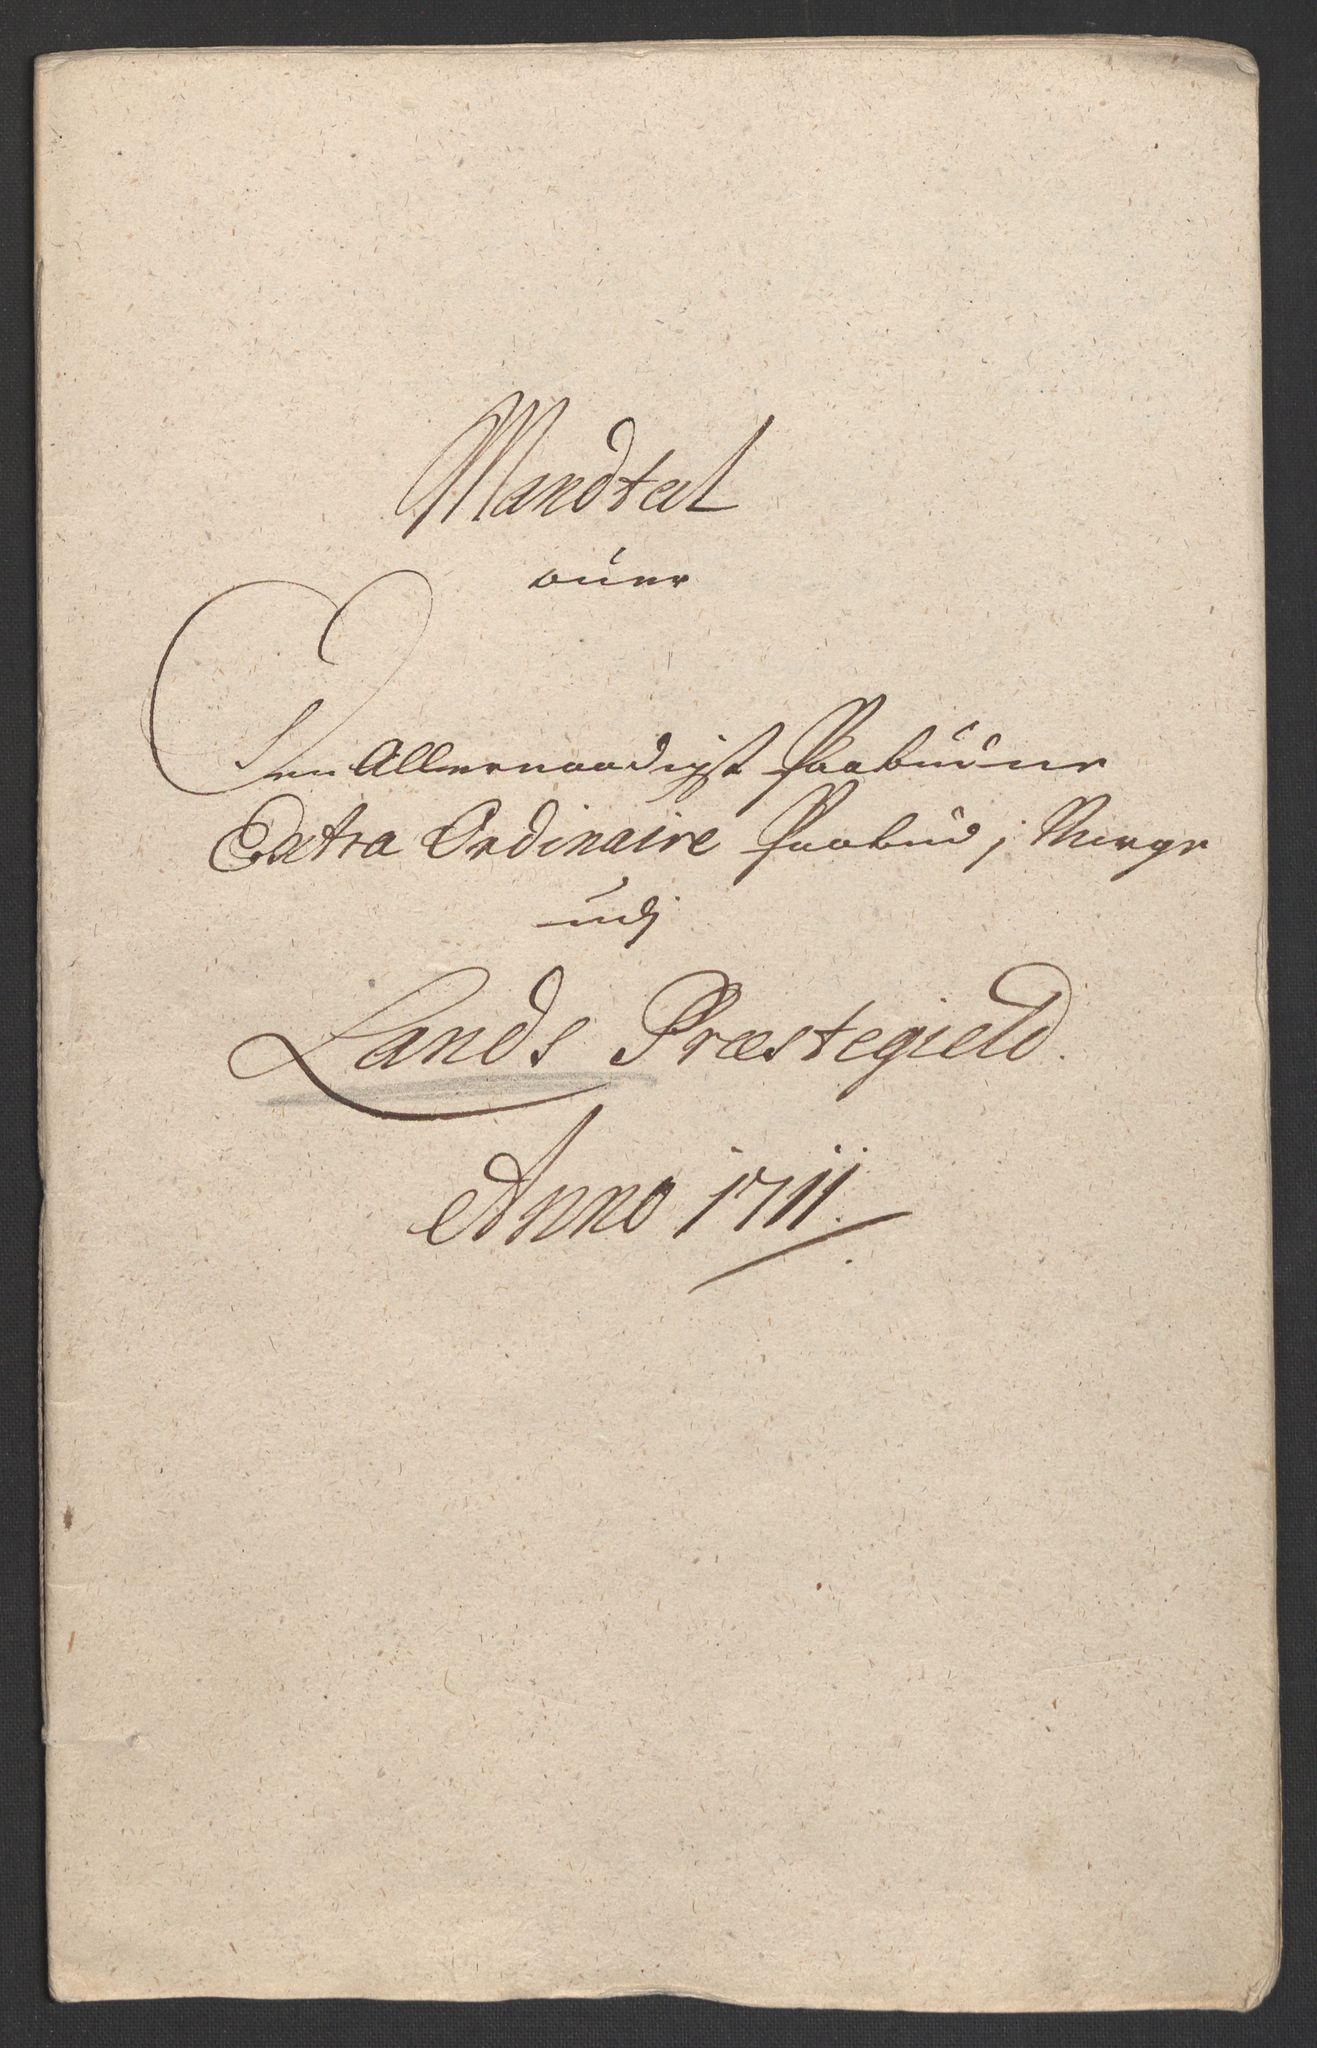 Mandtal
ofver
Den Allernaadigst Paabudne
Extra Ordinaire Paabud j Norge
udj
Lands Præstegield.
Anno 1711.